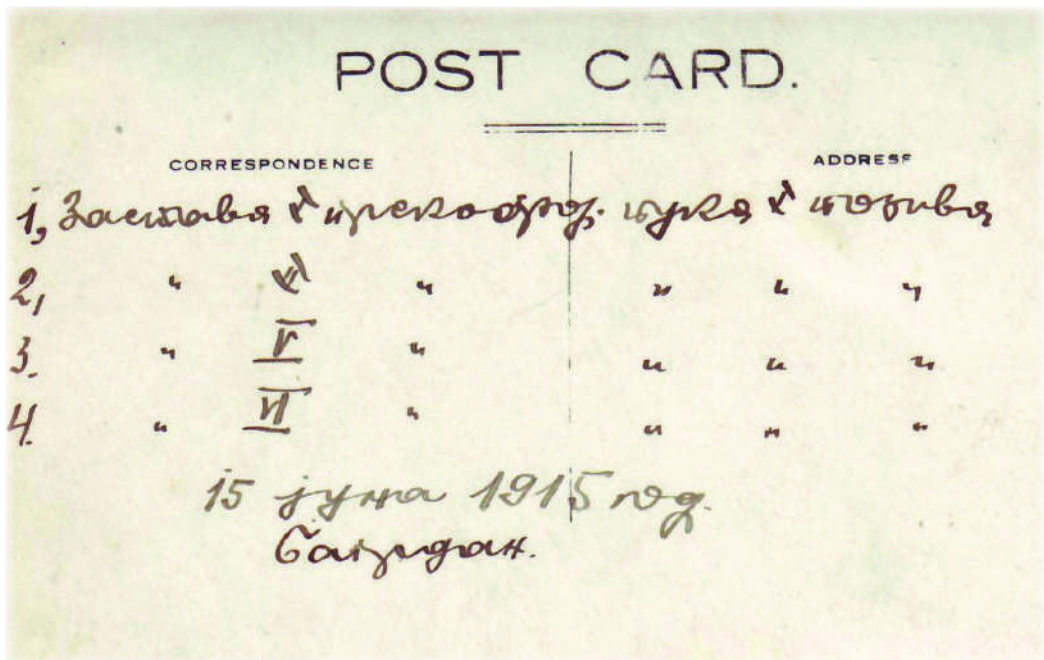 POST CARD.
CORRESPONDENCE
ADDRESS
1, Застава прекоброј. пука позива
2, " " " " "
3. " V " " " "
4. " VI " " " "
15 јуна 1915 год.
Багрдан.